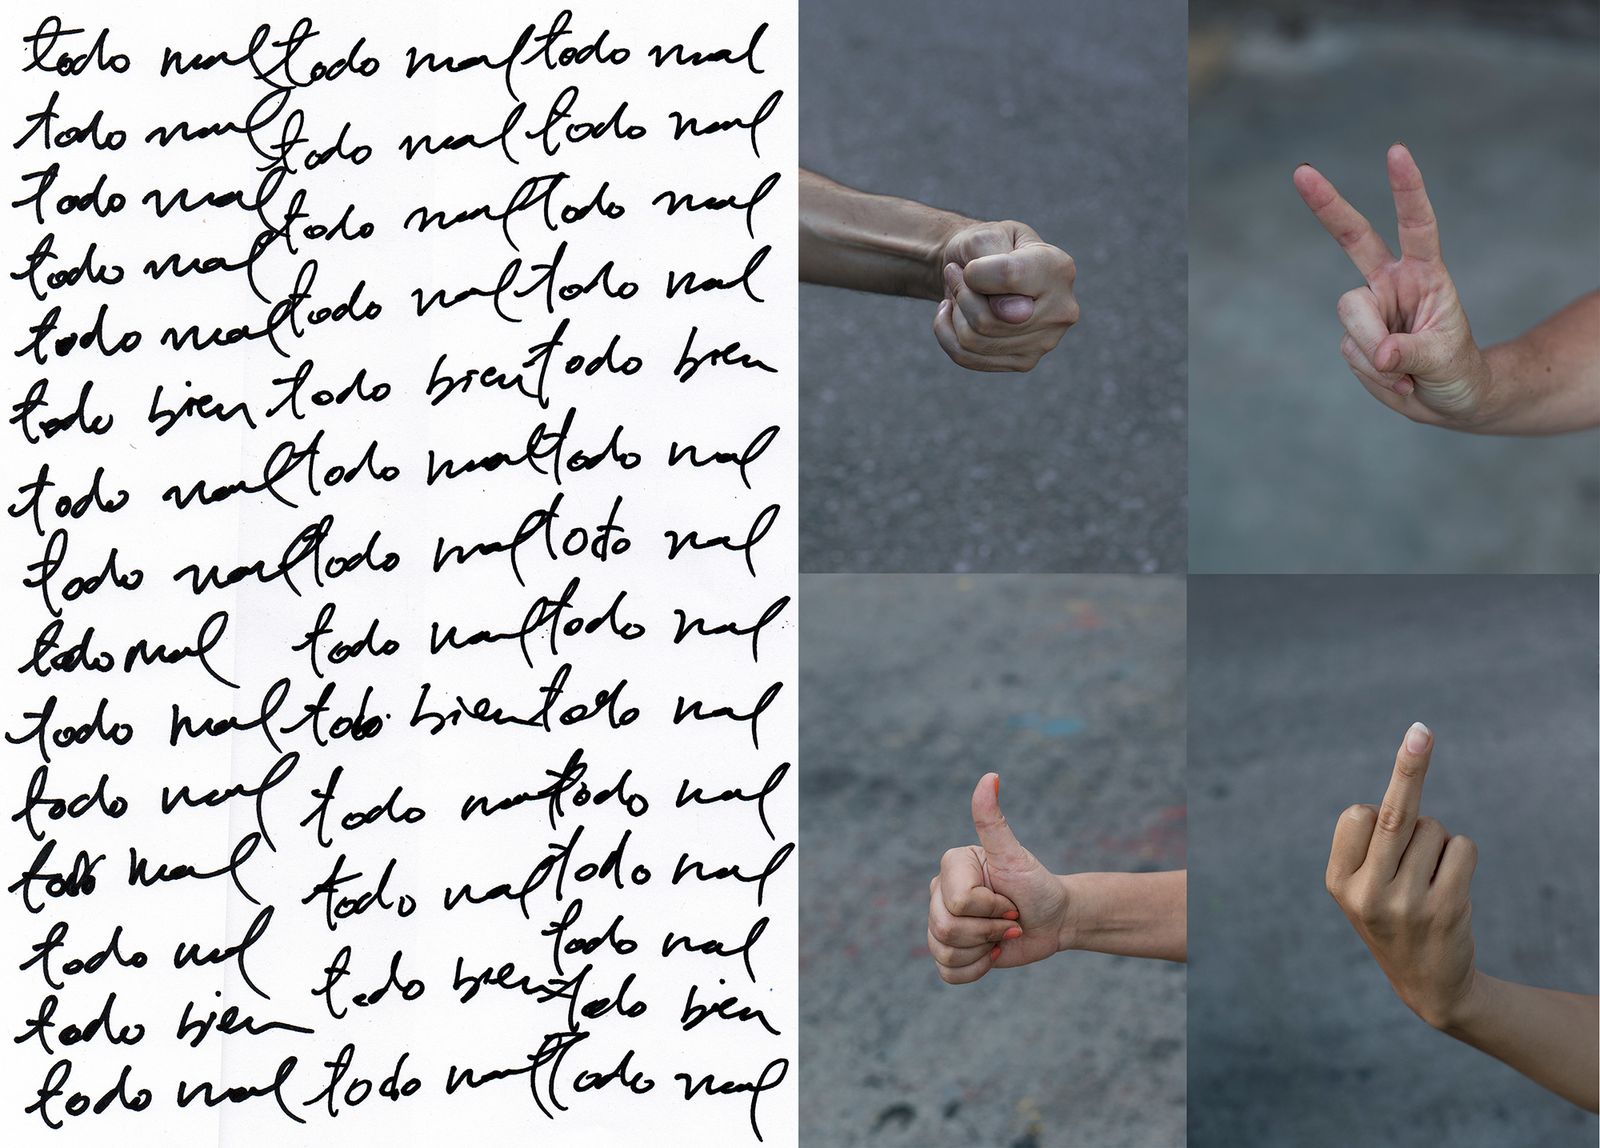 todo mal todo mal todo mal
todo mal todo mal todo mal
todo mal todo mal todo mal
todo mal todo mal todo mal
todo mal todo bien todo bien
todo bien todo mal todo mal
todo mal todo mal todo mal
todo mal todo mal todo mal
todo mal todo bien todo mal
todo mal todo mal todo mal
todo mal todo mal todo mal
todo mal todo bien todo mal
todo mal todo mal todo bien
todo bien todo mal
todo mal